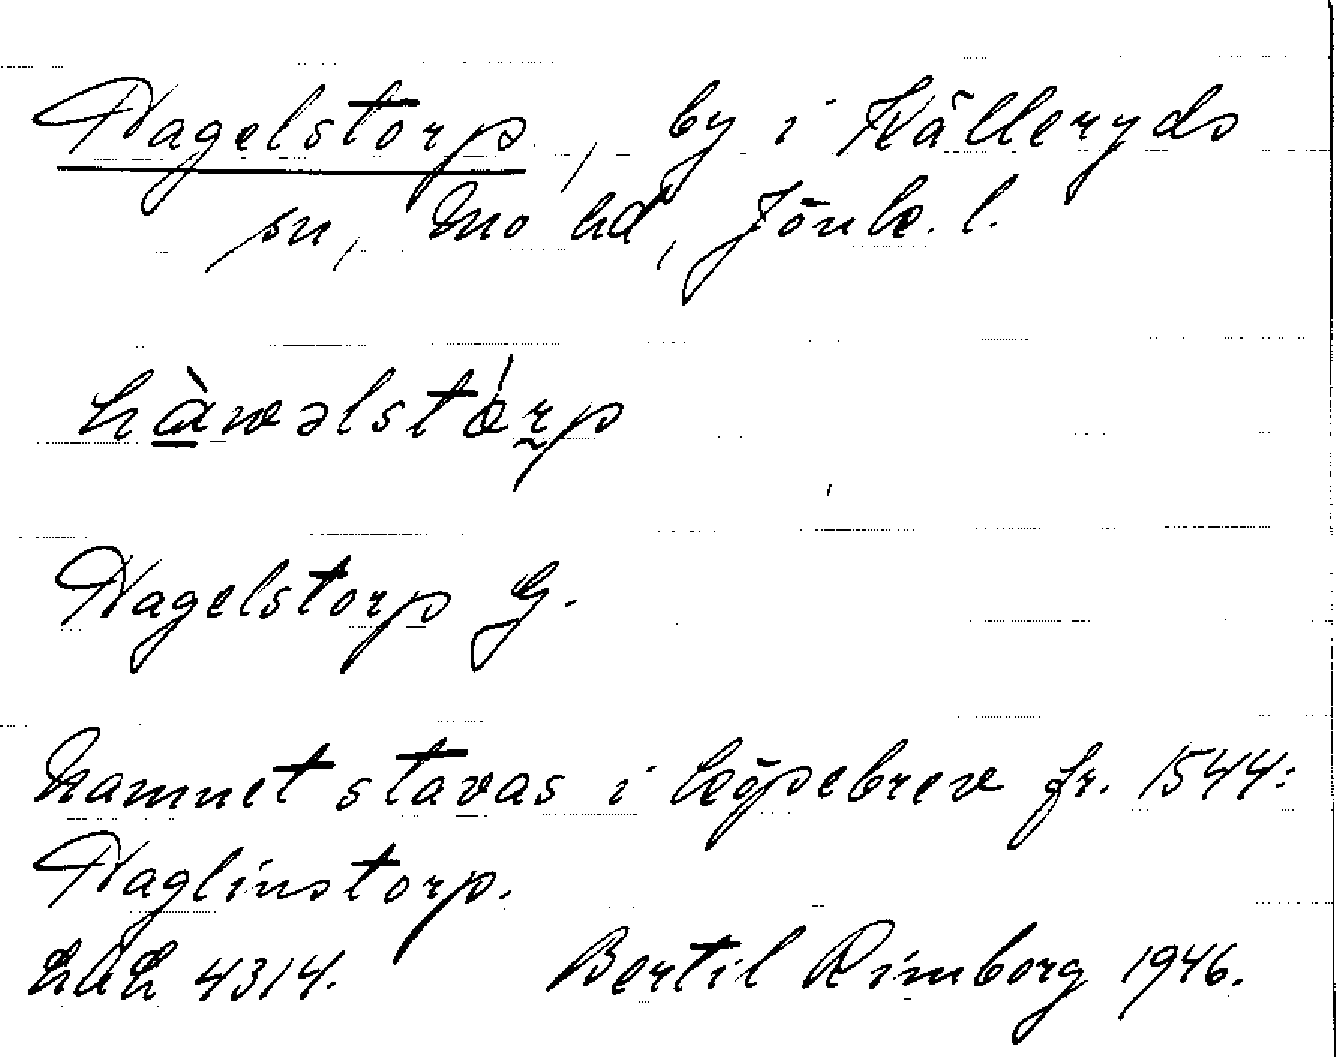 Hagelstorp, by i Kålleryds
sn, Mo hd, Jönk. l.
hàwəlstórp
Hagelstorp G.
Namnet stavas i köpebrev fr. 1544:
Haglinstorp.
4314. Bertil Rimborg 1946.